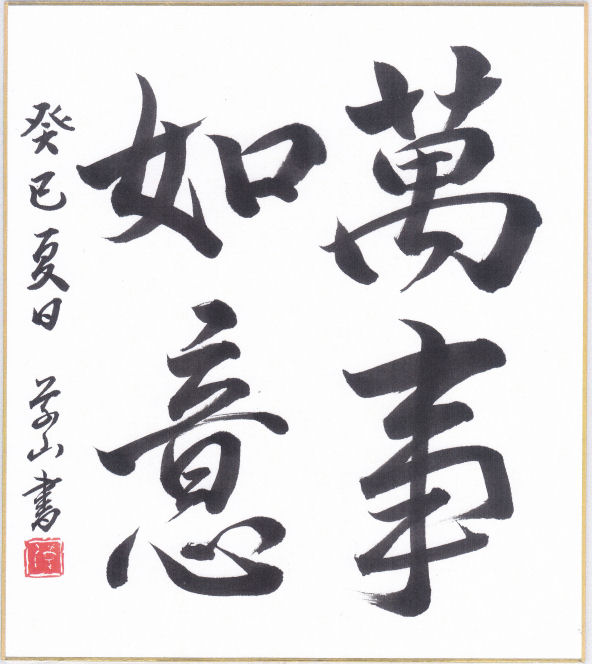 萬事
如意
癸巳夏日 山書